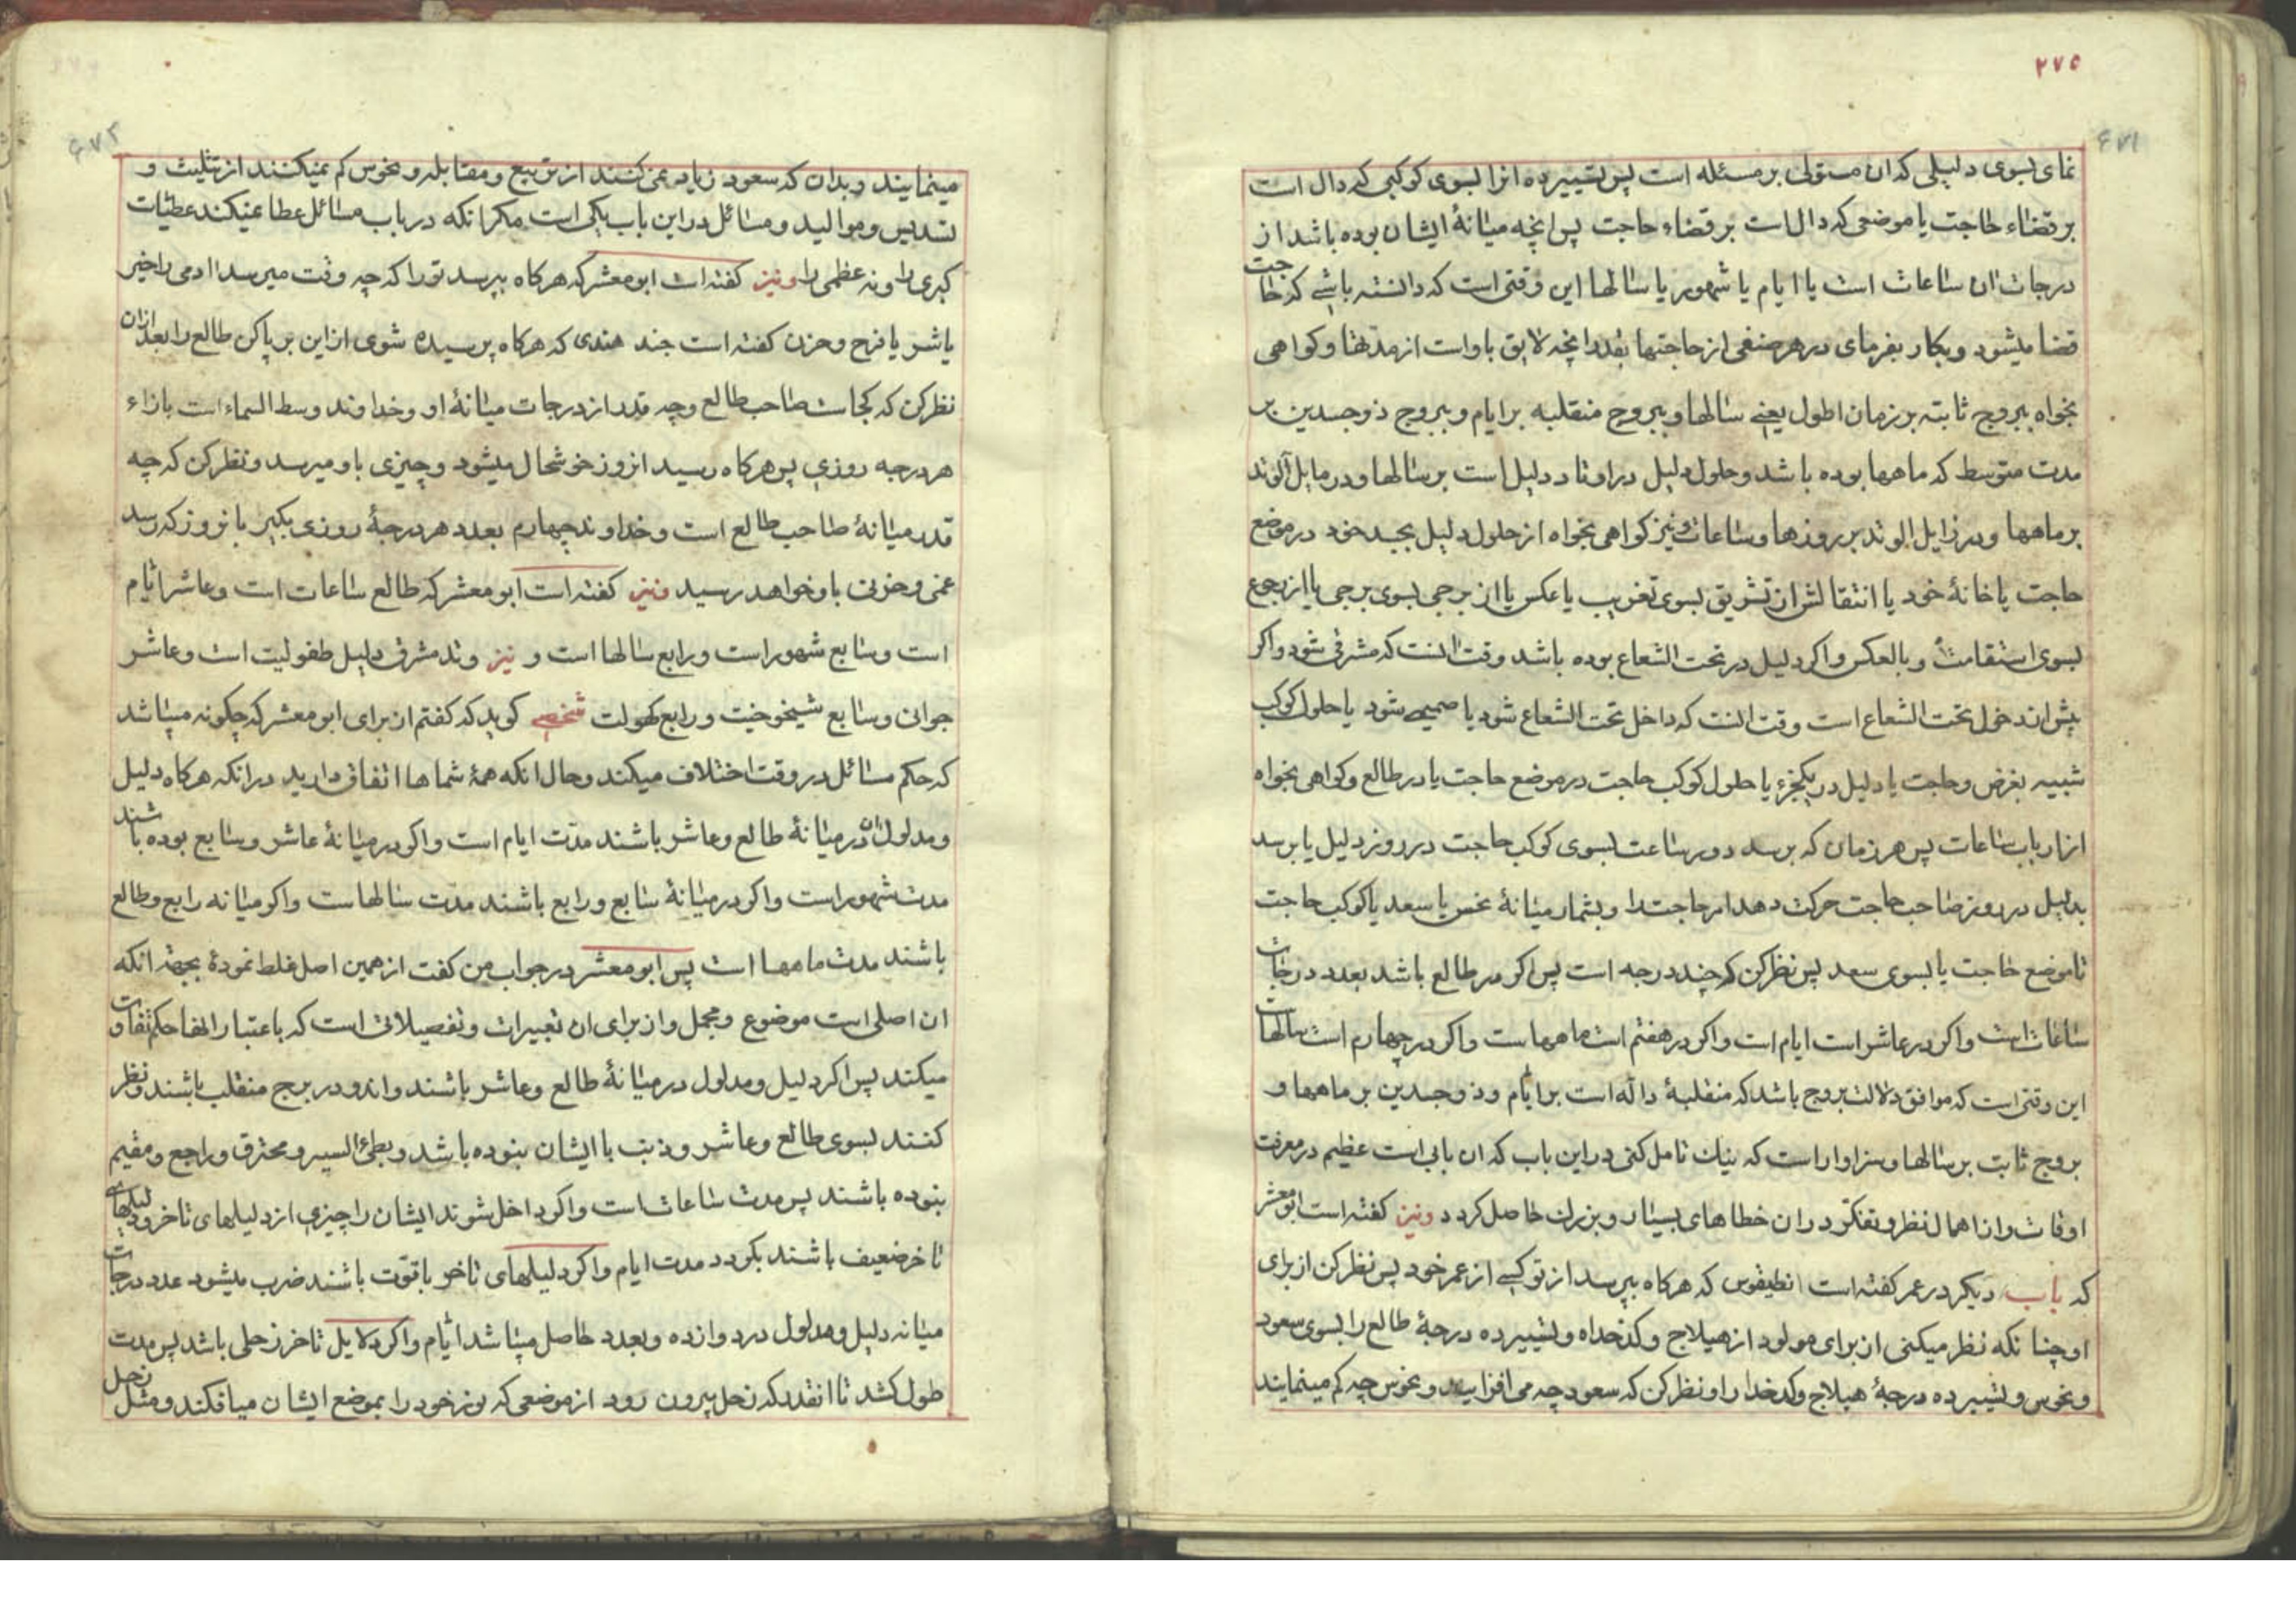 ۲۷۵
۶۷۱
نمای بسوی دلیلی که ان مستولی بر مسئله است پس تسییر ده انرا بسوی کوکبی که دال است
بر قضاء حاجت یا موضعی که دال است بر قضاء حاجت پس انچه میانهٔ ایشان بوده باشد از
درجات ان ساعات است یا ایام یا شهور یا سالها این وقتی است که دانسته باشی که حاجت
قضا میشود و بکار بفرمای در هر صنفی از حاجتها بقدر انچه لایق باو است از مدتها و کواهی
بخواه ببروج ثابته بر زمان اطول یعنی سالها و ببروج منقلبه بر ایام و ببروج ذوجسدین بر
مدت متوسط که ماهها بوده باشد و حلول دلیل در اوتاد دلیل است بر سالها و در مایل الوتد
بر ماهها و در زایل الوتد بر روزها و ساعات و نیز کواهی بخواه از حلول دلیل بجسد خود در موضع
حاجت یا خانهٔ خود یا انتقالش از تشریق بسوی تغریب یا عکس یا از برجی بسوی برجی یا از رجوع
بسوی استقامت و بالعکس و اکر دلیل در تحت الشعاع بوده باشد وقت انست که مشرقی شود و اکر
پیش از دخول تحت الشعاع است وقت انست که داخل تحت الشعاع شود یا صمیمی شود یا حلول کوکب
شبیه بغرض و حاجت یا دلیل در یکجزء یا حلول کوکب حاجت در موضع حاجت یا در طالع و کواهی بخواه
از ارباب ساعات پس هر زمان که برسد دور ساعت بسوی کوکب حاجت در روز دلیل یا برسد
بدلیل در روز صاحب حاجت حرکت دهد امر حاجت را و بشمار میانهٔ نحس یا سعد یا کوکب حاجت
تا موضع حاجت یا بسوی سعد پس نظر کن که چند درجه است پس اکر در طالع باشد بعدد درجات
ساعات است و اکر در عاشر است ایام است و اکر در هفتم است ماهها ست و اکر در چهارم است سالهاست
این وقتی است که موافق دلالت بروج باشد که منقلبهٔ داله است بر ایام و ذوجسدین بر ماهها و
بروج ثابت بر سالها و سزاوار است که نیك تامل کنی در این باب که ان بابی است عظیم در معرفت
اوقات و از اهمال نظر و تفکر در ان خطاهای بسیار و بزرك حاصل کردد ونیز کفته است ابو معشر
که باب دیکر در عمر کفته است انطیقوس که هرکاه بپرسد از تو کسی از عمر خود پس نظر کن از برای
او چنانکه نظر میکنی از برای مولود از هیلاج و کدخداه و تسییر ده درجهٔ طالع را بسوی سعود
و نحوس و تسییر ده درجهٔ هیلاج و کدخدا را و نظر کن که سعود چه می افزایند و نحوس چه کم مینمایند
۶۷۲
مینمایند و بدان که سعود زیاده نمی کنند از تربیع و مقابله و نحوس کم نمیکنند از تثلیث و
تسدیس و موالید و مسائل در این باب یکی است مکر انکه در باب مسائل عطا نمیکند عطیات
کبری را و نه عظمی را ونیز کفته است ابو معشر که هرکاه بپرسد تو را که چه وقت میرسد ادمی را خیر
یا شر یا فرح و حزن کفته است جند هندی که هرکاه پرسیده شوی از این بر پا کن طالع را بعد از ان
نظر کن که کجاست صاحب طالع و چه قدر از درجات میانهٔ او و خداوند وسط السماء است بازاء
هر درجه روزی پس هرکاه رسید انروز خوشحال میشود و چیزی باو میرسد و نظر کن که چه
قدر میانهٔ صاحب طالع است و خداوند چهارم بعدد هر درجهٔ روزی بکیر بانروز که رسد
غمی و حزنی باو خواهد رسید ونیز کفته است ابو معشر که طالع ساعات است و عاشر ایام
است و سابع شهور است و رابع سالها است و نیز وتد مشرق دلیل طفولیت است و عاشر
جوانی و سابع شیخوخیت و رابع کهولت شخصی کوید که کفتم ان برای ابو معشر که چکونه میباشد
که حکم مسائل در وقت اختلاف میکند و حال انکه همهٔ شماها اتفاق دارید در انکه هرکاه دلیل
و مدلول ان در میانهٔ طالع و عاشر باشند مدت ایام است و اکر در میانهٔ عاشر و سابع بوده باشند
مدت شهور است و اکر در میانهٔ سابع و رابع باشند مدت سالهاست و اکر میانه رابع و طالع
باشند مدت ماهها است پس ابو معشر در جواب من کفت از همین اصل غلط نمودهٔ بجهة انکه
ان اصلی است موضوع و مجمل و از برای ان تعبیرات و تفصیلاتی است که باعتبار انها حکم تفاوت
میکند پس اکر دلیل و مدلول در میانهٔ طالع و عاشر باشند و اندو در برج منقلب باشند و نظر
کنند بسوی طالع و عاشر و ذنب با ایشان نبوده باشد و بطئ السیر و محترق و راجع و مقیم
نبوده باشند پس مدت ساعات است و اکر داخل شوند ایشان را چیزی از دلیلهای تاخر و دلیلهای
تاخر ضعیف باشند بکردد مدت ایام و اکر دلیلهای تاخر با قوت باشند ضرب میشود عدد درجات
میانه دلیل و مدلول در دوازده و بعدد حاصل میباشد ایام و اکر دلایل تاخر زحلی باشد پس مدت
طول کشد تا انقدر که زحل بیرون رود از موضعی که نور خود را بموضع ایشان میافکند و مثل زحل